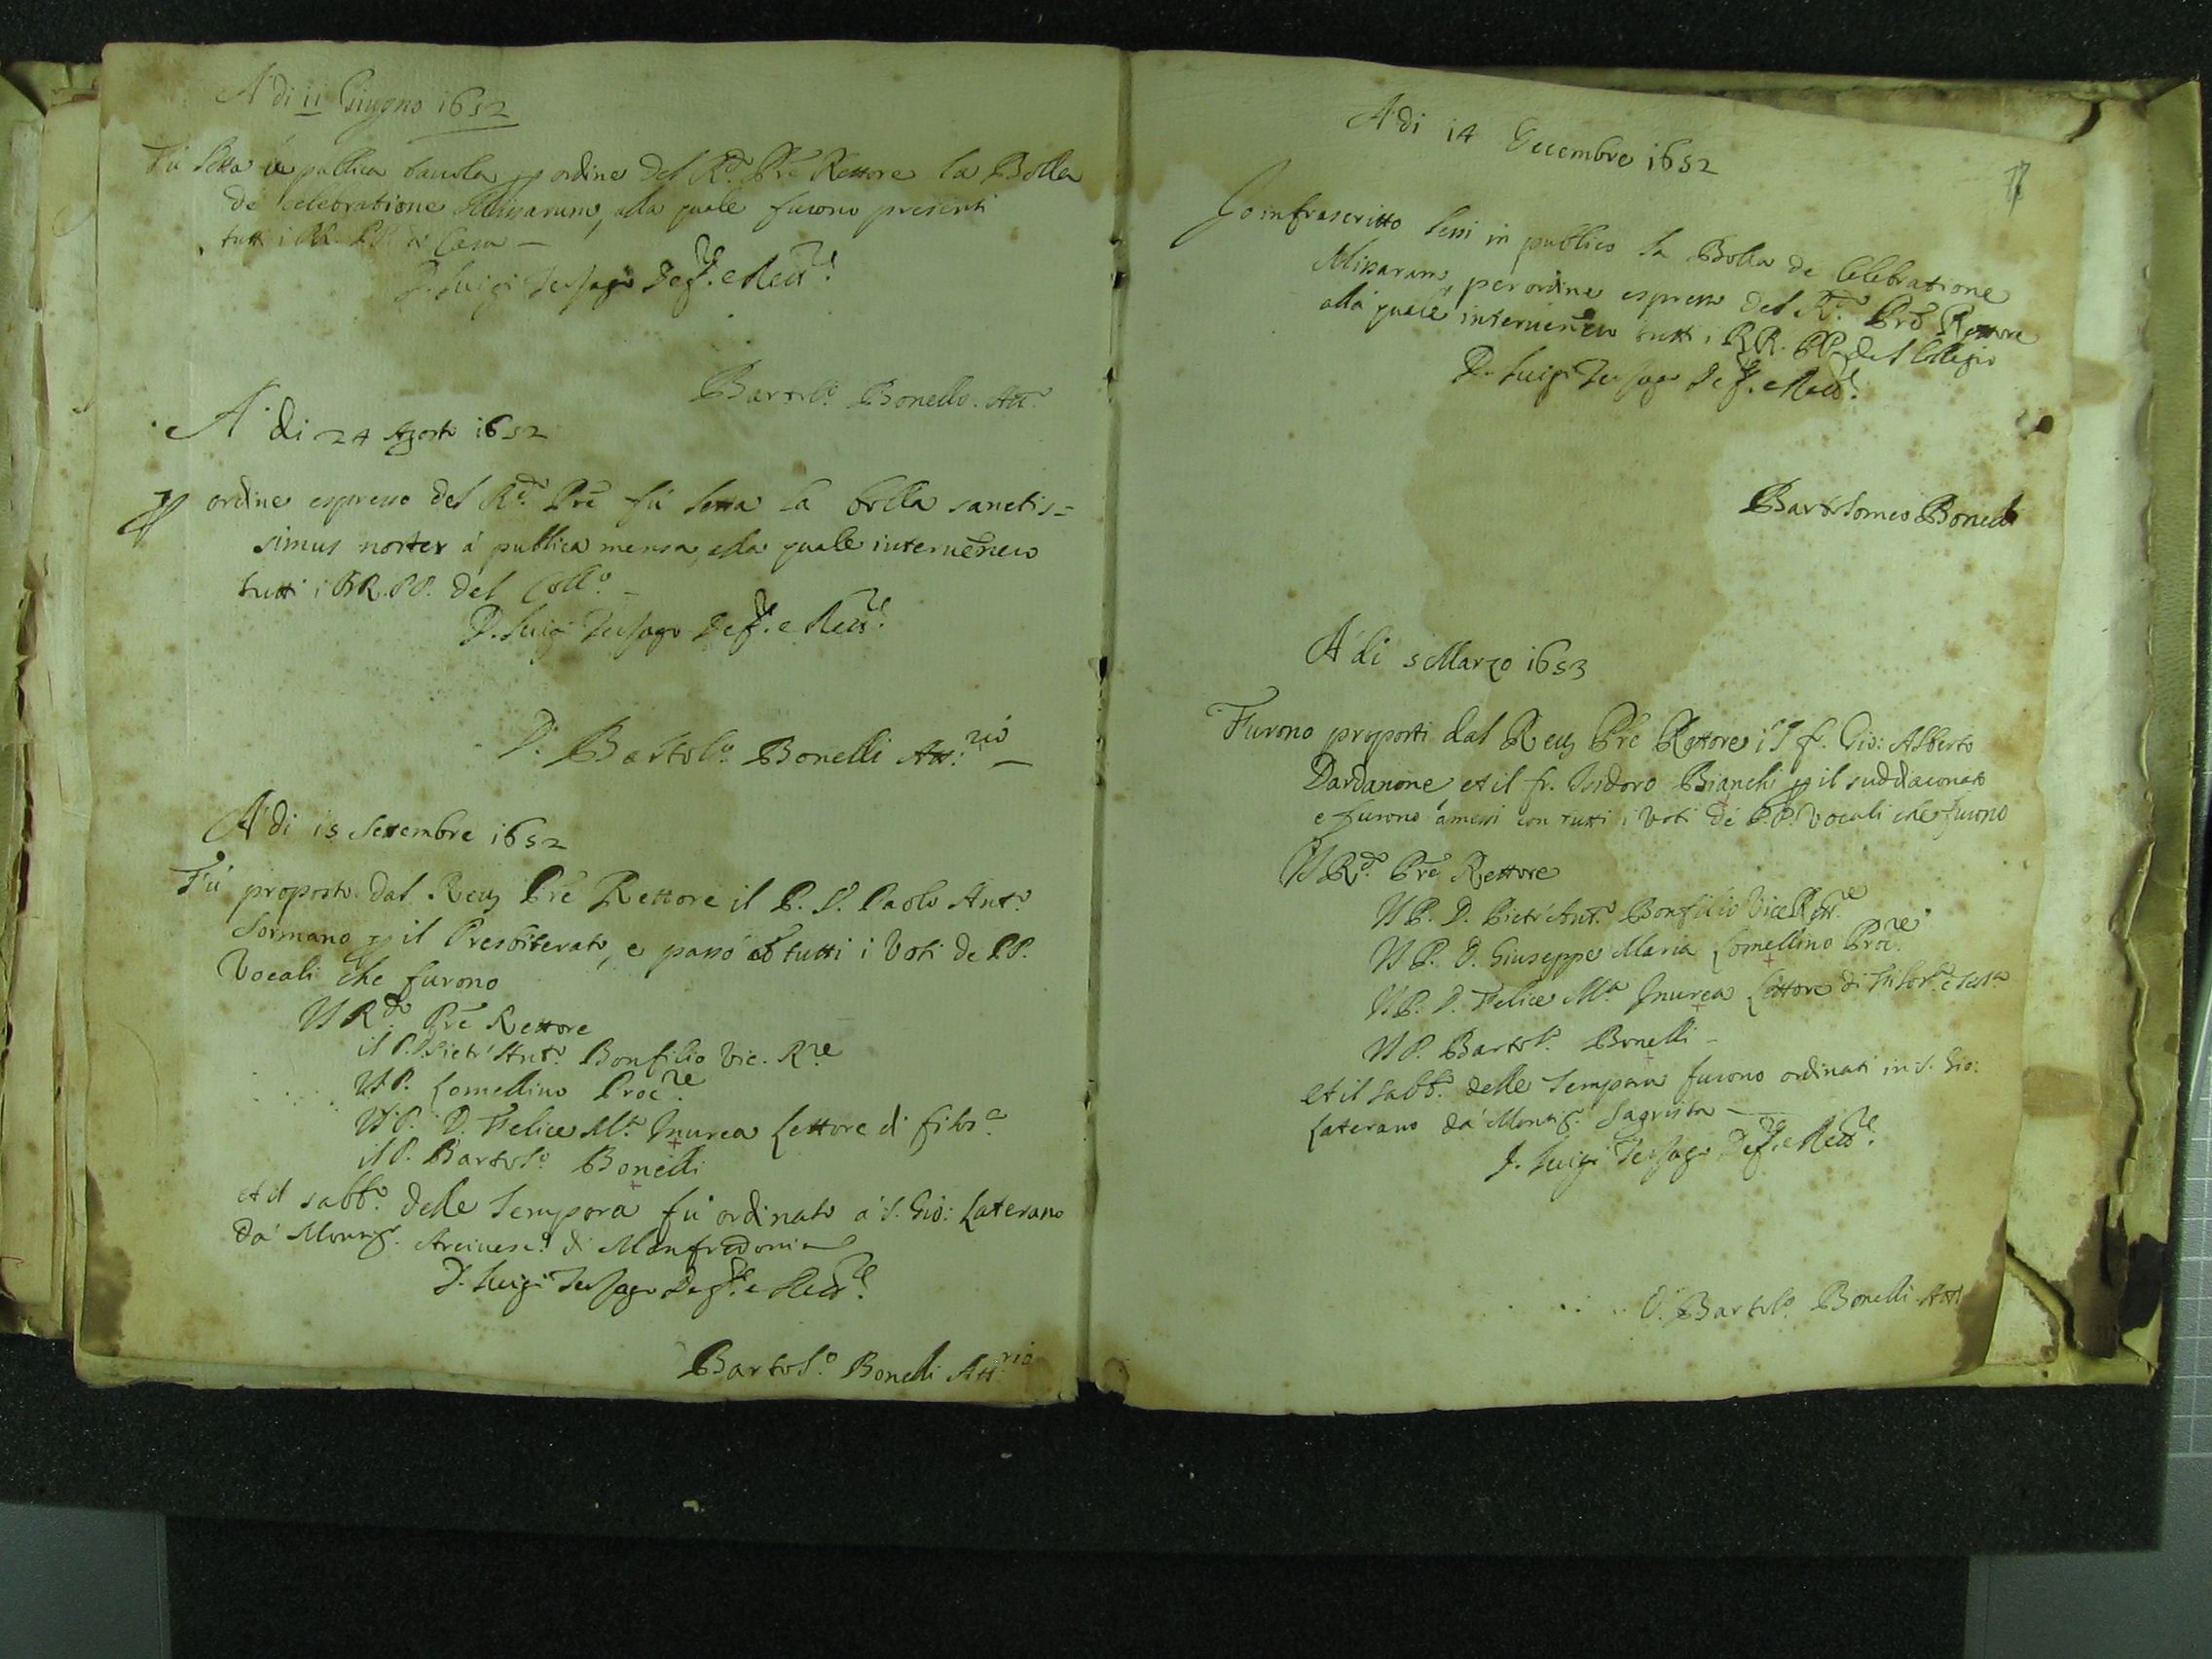 A' di 11 Giugno 1652
Fù letta in publica tauola ꝑ ordine del R.do P̃re Rettore la Bolla
de celebratione Missarum, alla quale furono presenti
tutti i RR. PP. di Casa —
D. Luigi
Bartol.o Bonello Att.
A' di 24 Agosto 1652
ꝑ ordine espresso del R.do P̃re fù letta la bolla sanctis=
simus noster à publica mensa, alla quale interuẽnero
tutti i RR. PP. del Coll.o —
D. Luigi
D. Bartol.o Bonelli Att.rio —
A' di 15 Settembre 1652
Fù proposto dal Reu P̃re Rettore il P. D. Paolo Ant.o
Sormano ꝑ il Presbiterato, e passò tutti i Voti de PP.
Vocali che furono
Il R.do P̃re Rettore
il P. D. Pietr'Ant.o Bonfilio Vic. R.re
Il P. Lomellino Proc.re
Il P. D. Felice M.a Inurea Lettore di filos.a
il P. Bartol.o Bonelli
et il sabb.o delle Tempora fù ordinato à S. Gio: Laterano
da Monsig.r Arciuesc.o di Manfredonia
D. Luigi
Bartol.o Bonelli Att.rio
A' di 14 Decembre 1652
17
Io infrascritto lessi in publico la Bolla de Celebratione
Missarum, per ordine espresso del R.do Prẽ Rettore
alla quale interuenẽro tutti i RR. PP. del Collegio
D. Luigi
Bartolomeo Bonelli
A' di 5 Marzo 1653
Furono proposti dal Reu P̃re Rettore il f. Gio: Alberto
Dardanone, et il fr. Isidoro Bianchi ꝑ il suddiaconato
e furono amessi con tutti i Voti de P.P. Vocali che furono
Il R.do P̃re Rettore
Il P. D. Pietr'Ant.o Bonfilio Vice Rett.re
Il P. D. Giuseppe Maria Lomellino Proc.re
Il P. D. Felice M.a Inurea Lettore di Filos.a
Il P. Bartol.o Bonelli —
et il sabb.o delle Tempora furono ordinati in S. Gio:
Laterano da Monsig.r Sagrista —
D. Luigi
D. Bartol.o Bonelli Att.